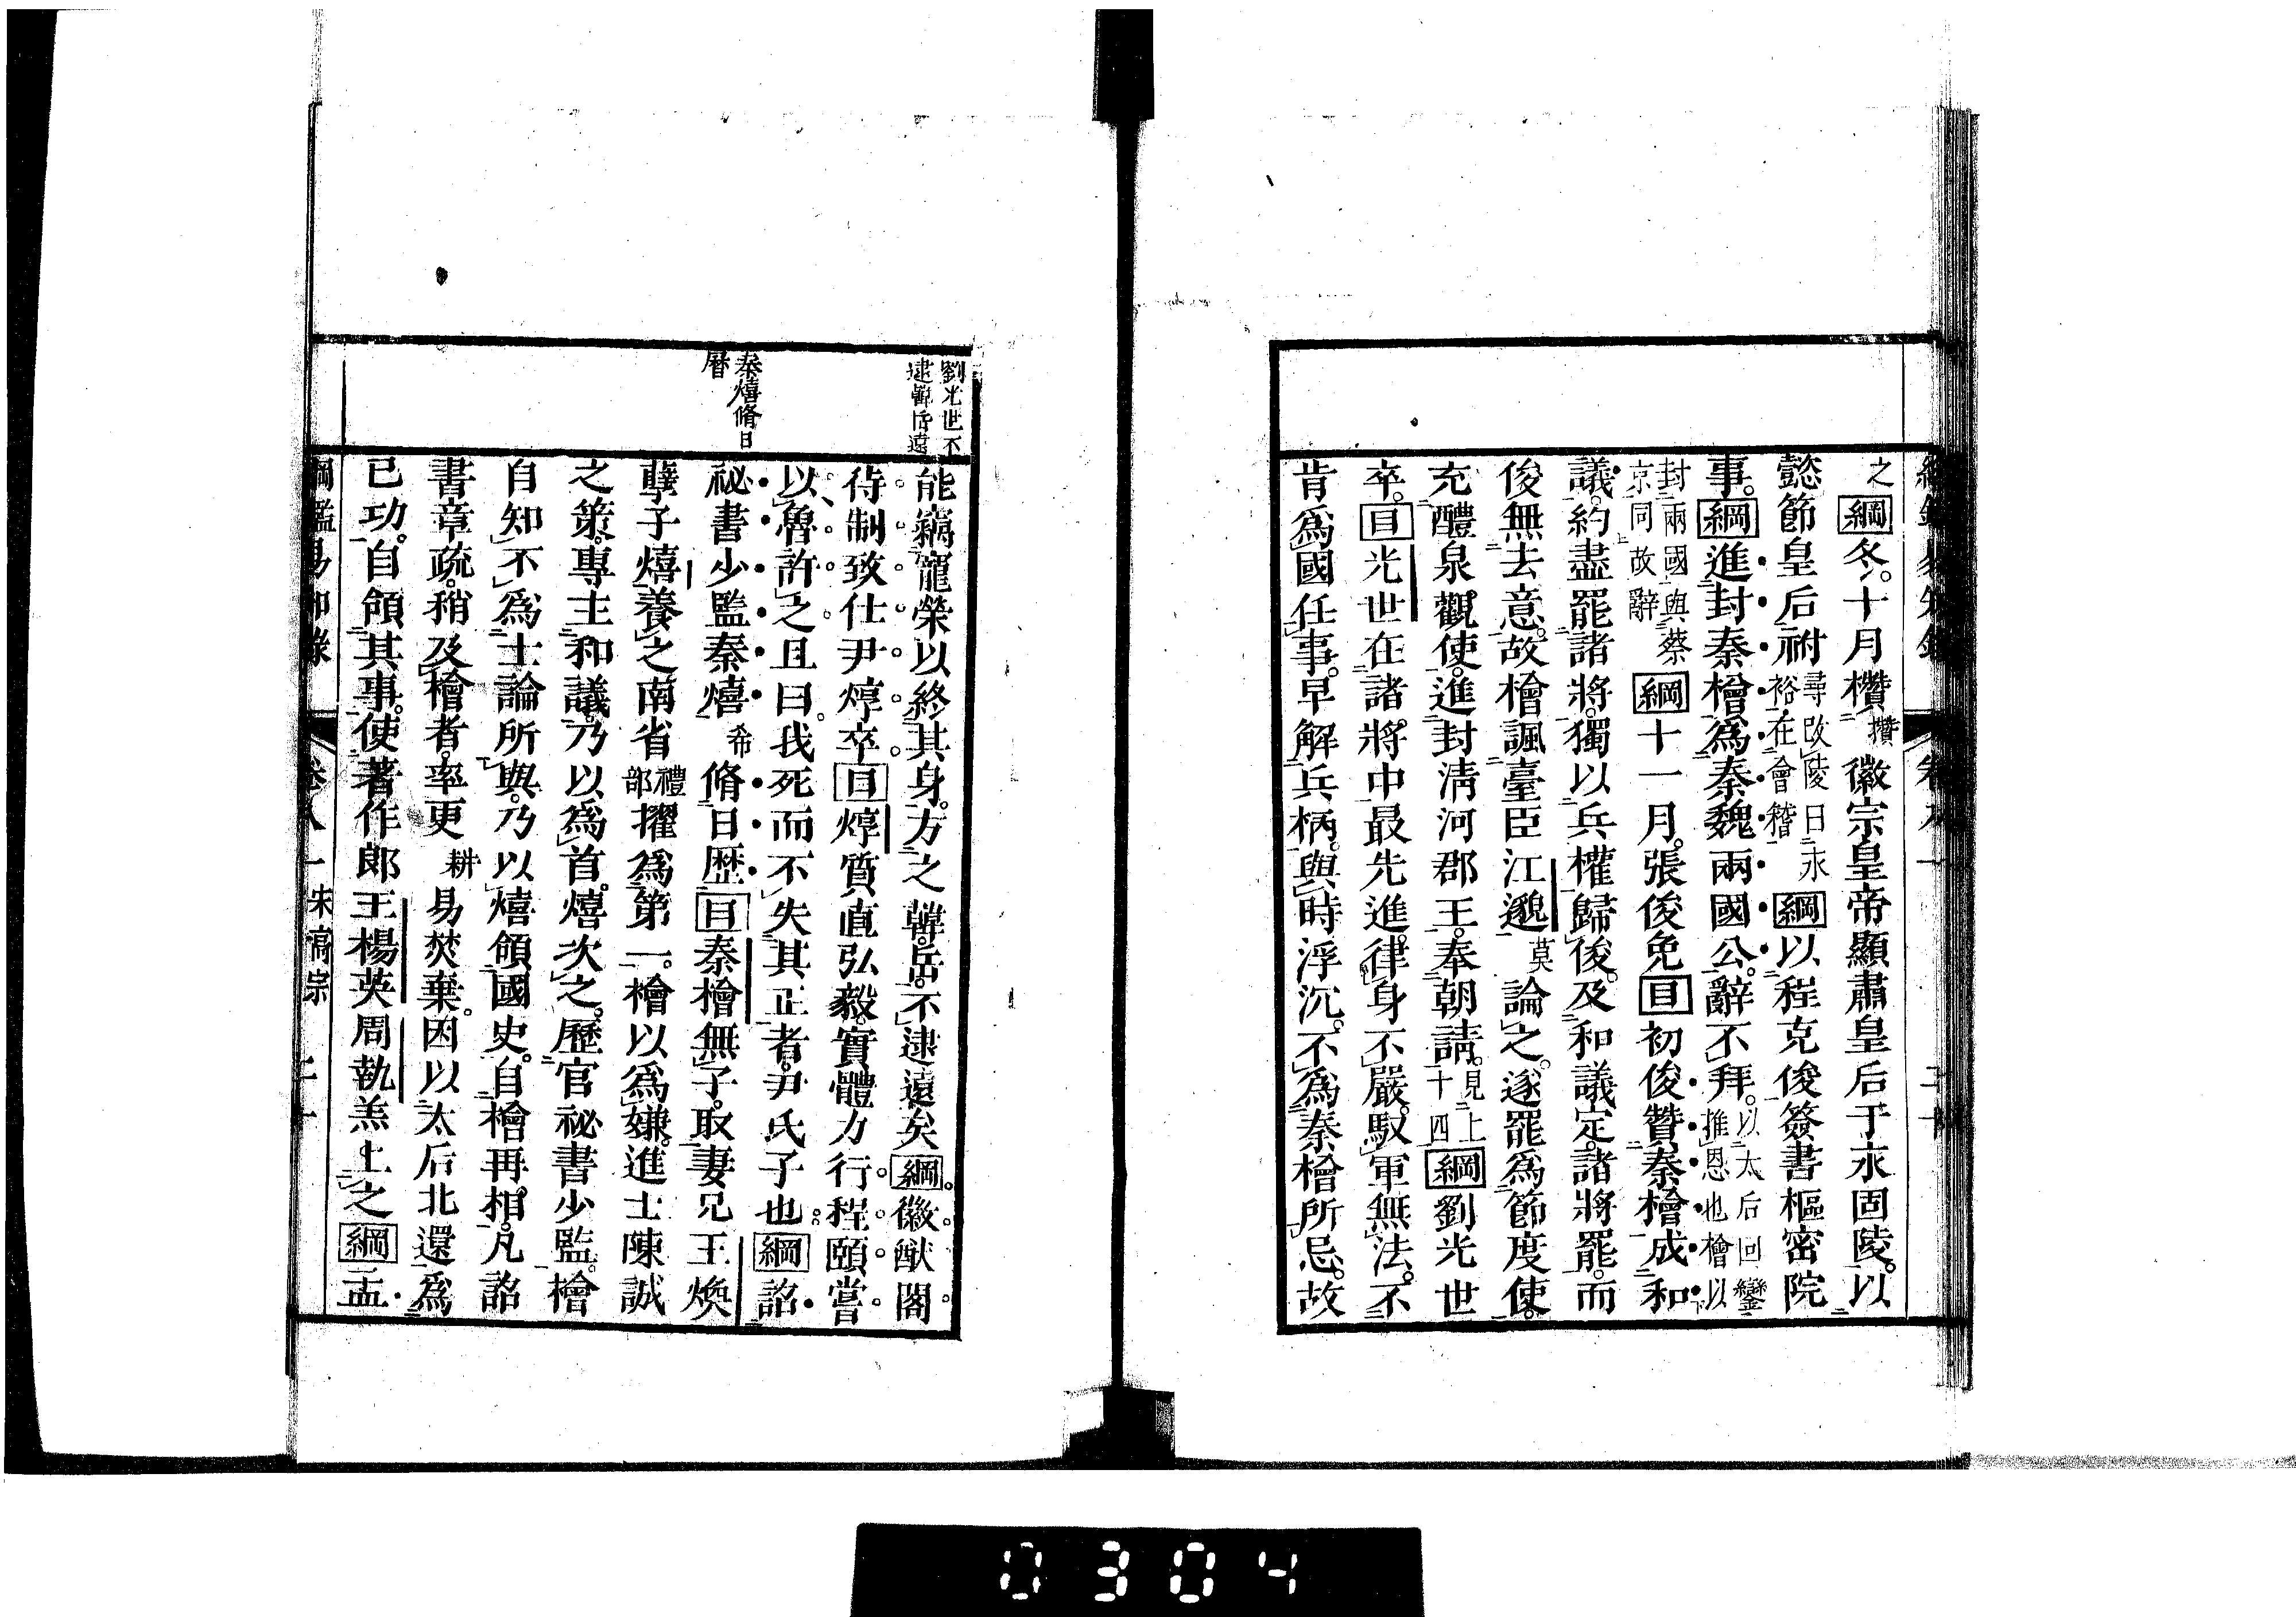 之綱冬。十月欑攢徽宗皇帝顯肅皇后于永固陵。以
懿節皇后祔尋改陵曰永裕在會稽綱以程克俊簽書樞密院
事。綱進封秦檜爲秦魏兩國公。辭不拜。以太后回鑾推恩也檜以
封兩國與蔡京同故辭綱十一月。張俊免目初俊贊秦檜成和
議。約盡罷諸將。獨以兵權歸俊。及和議定。諸將罷。而
俊無去意。故檜諷臺臣江邈莫論之。遂罷爲節度使。
充醴泉觀使。進封淸河郡王。奉朝請。見上十四綱劉光世
卒。目光世在諸將中最先進。律身不嚴。馭軍無法。不
肯爲國任事。早解兵柄。與時浮沉。不爲秦檜所忌。故
劉光世不
逮韓岳遠
能竊寵榮以終其身。方之韓岳。不逮遠矣綱徽猷閣
待制致仕尹焞卒目焞質直弘毅。實體力行。程頤嘗
以魯許之且曰。我死而不失其正者。尹氏子也。綱詔
秦熺脩日
曆
祕書少監秦熺希脩日歷目秦檜無子。取妻兄王煥
孽子熺養之南省禮部擢爲第一。檜以爲嫌。進士陳誠
之策。專主和議。乃以爲首。熺次之。歷官祕書少監。檜
自知不爲士論所與。乃以熺領國史。自檜再相。凡詔
書章疏。稍及檜者。率更耕易焚棄。因以太后北還爲
已功。自領其事。使著作郎王楊英周執羔上之綱孟
綱鑑易知錄 卷八一 宋高宗
0304